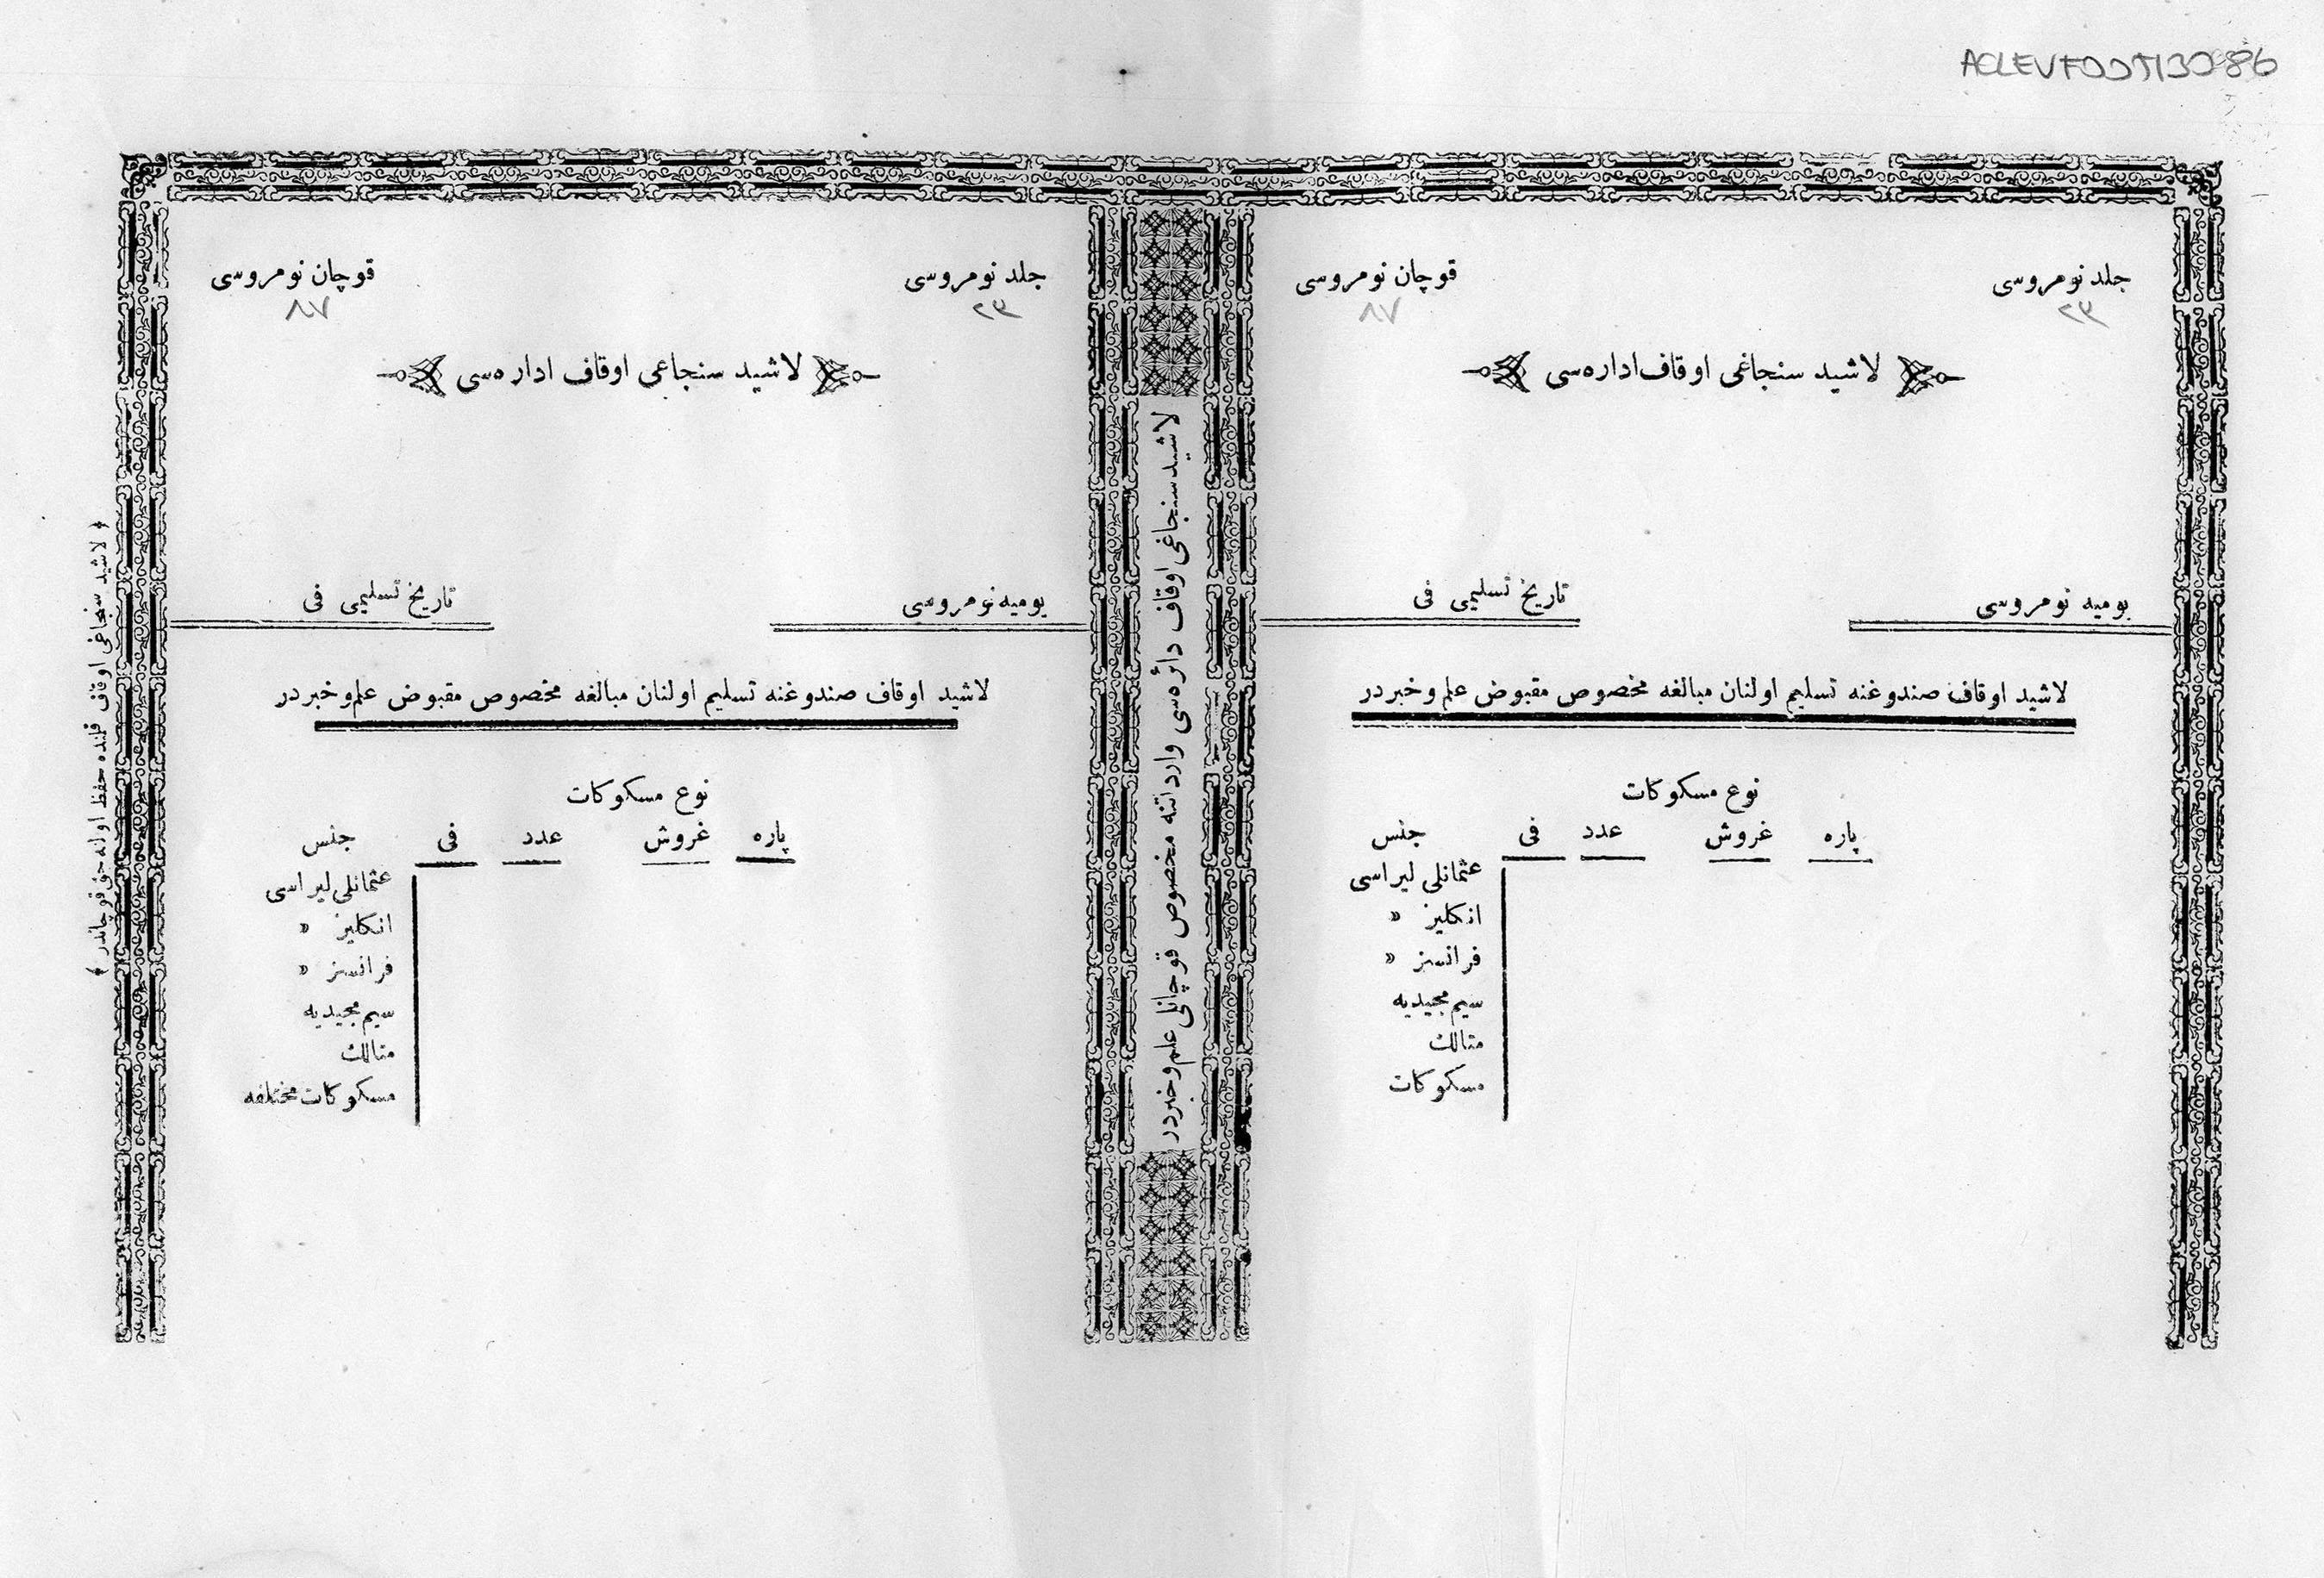 ACLEVF00T13086
جلد نومروسی
٢٣
قوچان نومروسی
٨٧
لاشید سنجاغی اوقاف اداره‌سی
یومیه نومروسی
تاریخ تسلیمی فی
لاشید اوقاف صندوغنه تسلیم اولنان مبالغه مخصوص مقبوض علم و خبردر
نوع مسکوکات
پاره غروش عدد فی جنس
عثمانلی لیراسی
انکلیز »
فرانسز »
سیم مجیدیه
متالك
مسکوکات
لاشید سنجاغی اوقاف دائره‌سی وارداتنه مخصوص قوچانلی علم و خبردر
جلد نومروسی
٢٣
قوچان نومروسی
٨٧
لاشید سنجاغی اوقاف اداره‌سی
یومیه نومروسی
تاریخ تسلیمی فی
لاشید اوقاف صندوغنه تسلیم اولنان مبالغه مخصوص مقبوض علم و خبردر
نوع مسکوکات
پاره غروش عدد فی جنس
عثمانلی لیراسی
انکلیز »
فرانسز »
سیم مجیدیه
متالك
مسکوکات مختلفه
لاشید سنجاغی اوقاف قلنده حفظ اوله جق قوچاندر